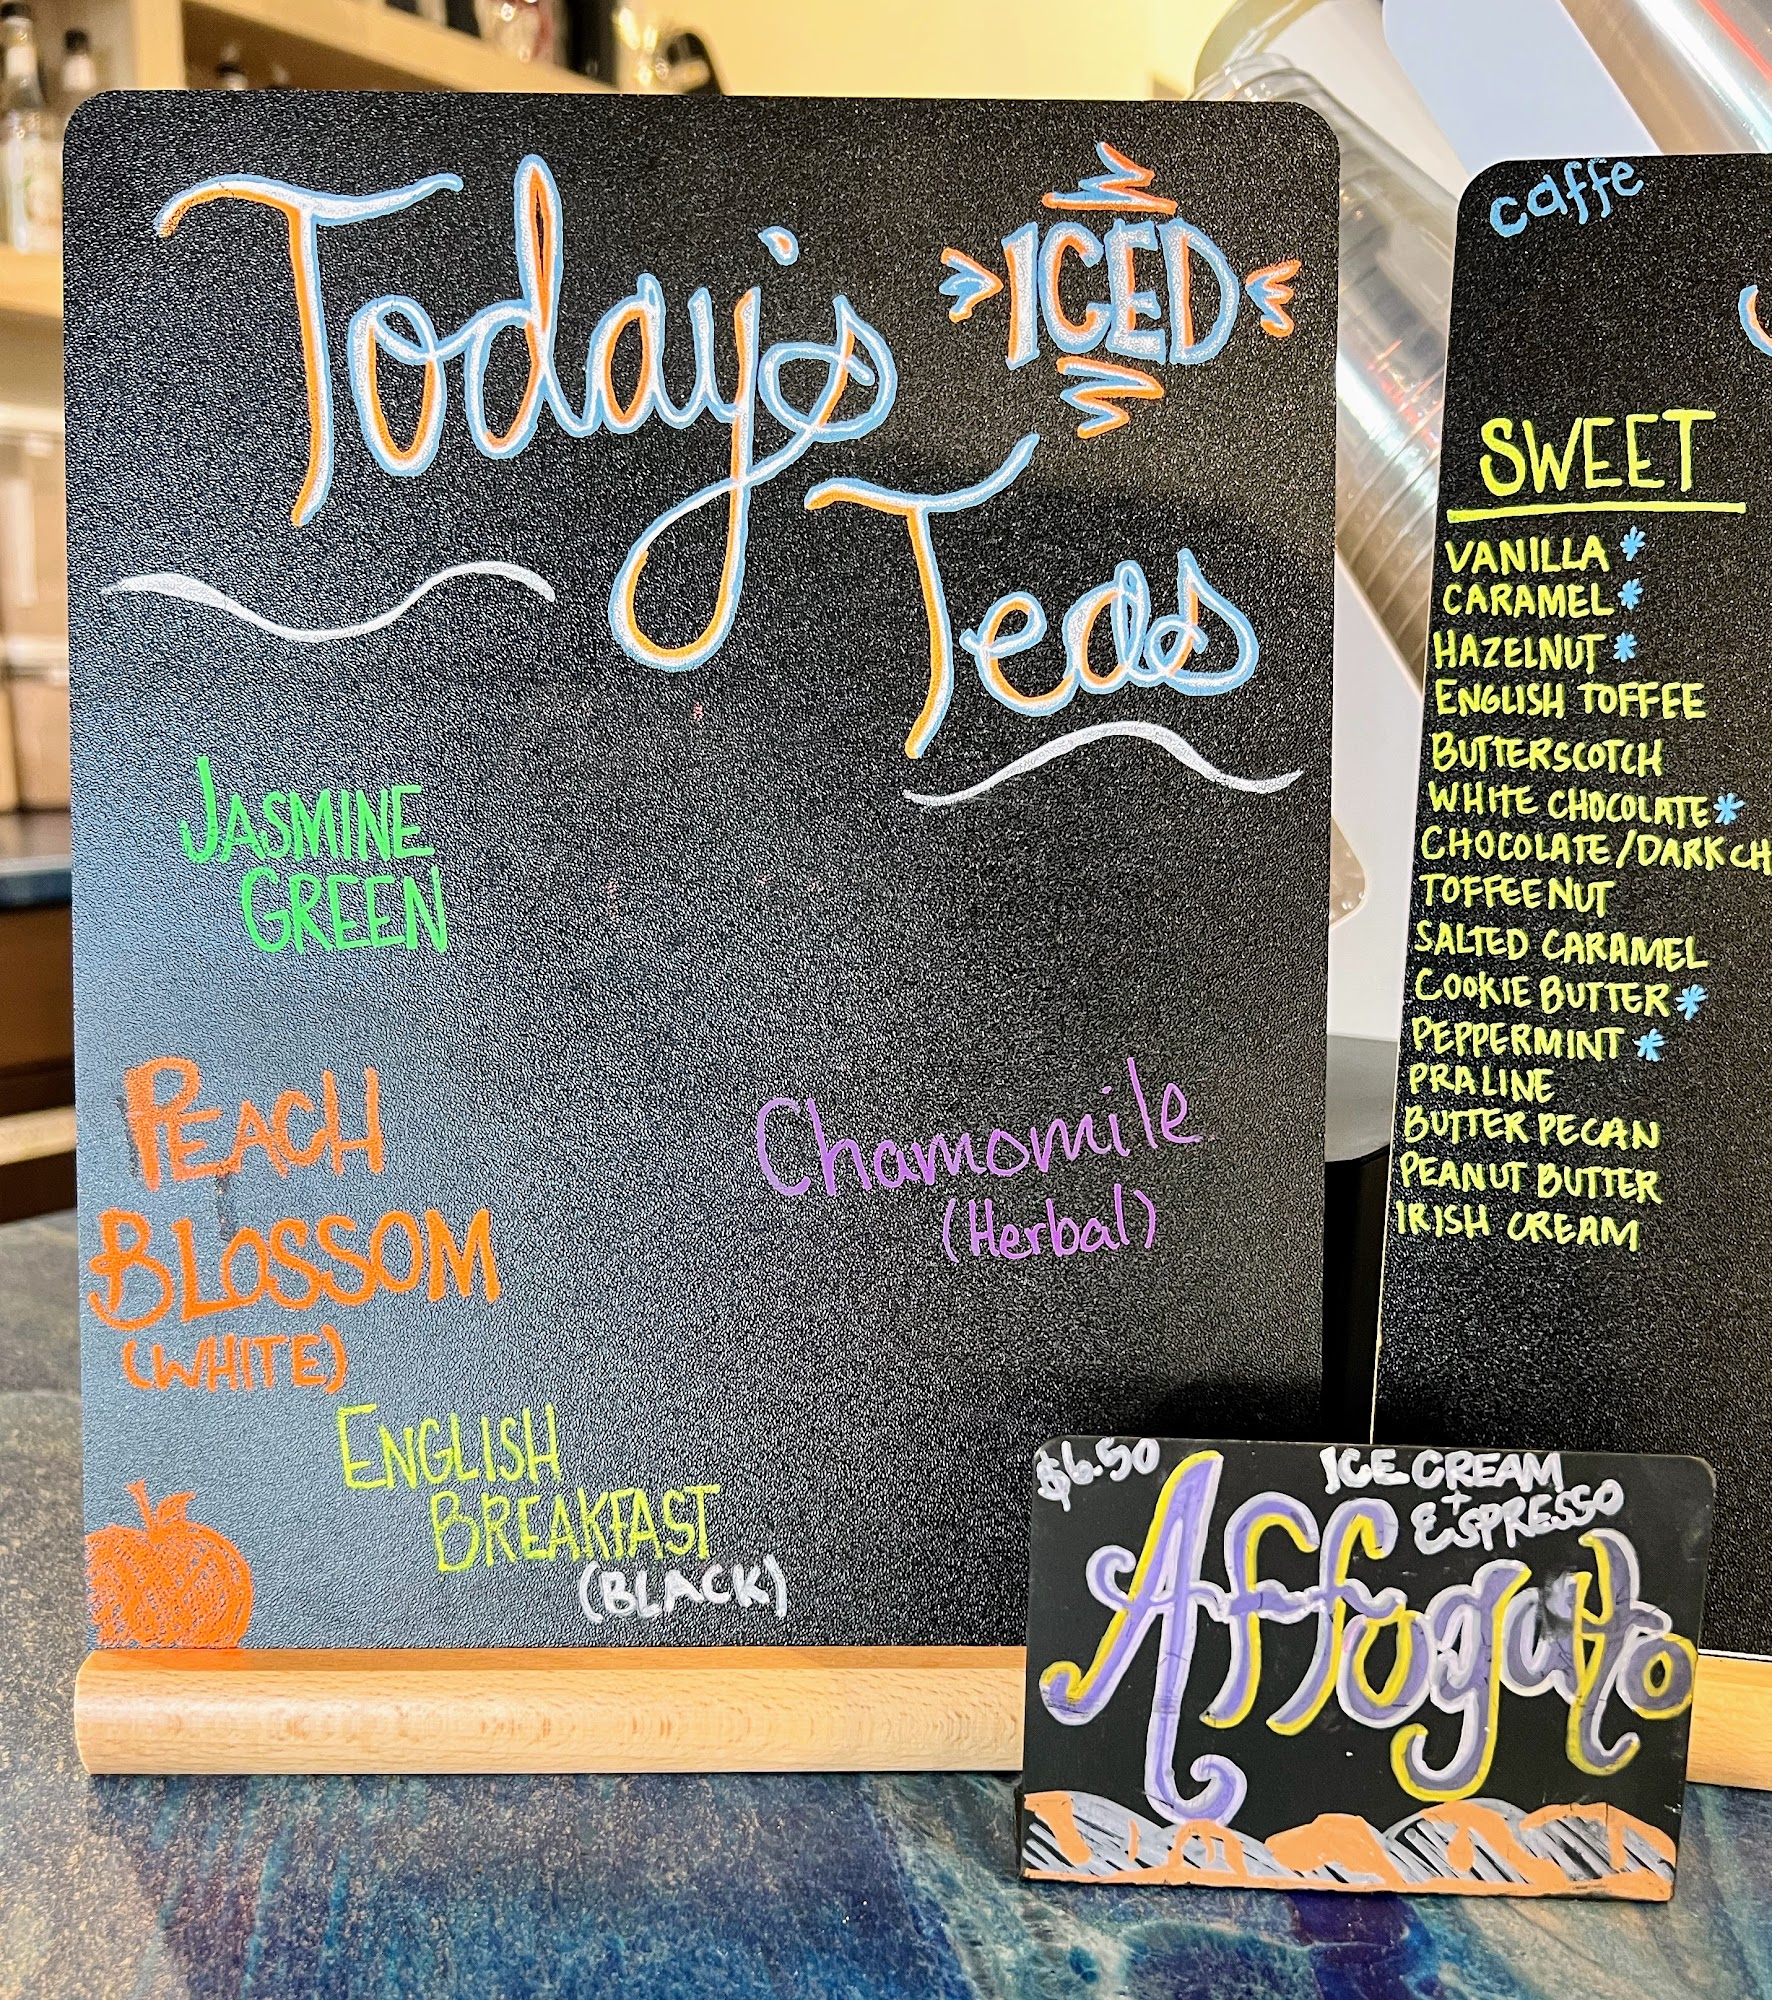 Today's
ICED
Teas
JASMINE
GREEN
PEACH
BLOSSOM
(WHITE)
Chamomile
(Herbal)
ENGLISH
BREAKFAST
(BLACK)
caffe
SWEET
VANILLA *
CARAMEL *
HAZELNUT *
ENGLISH TOFFEE
BUTTERSCOTCH
WHITE CHOCOLATE *
CHOCOLATE/DARK CH
TOFFEE NUT
SALTED CARAMEL
COOKIE BUTTER *
PEPPERMINT *
PRALINE
BUTTER PECAN
PEANUT BUTTER
IRISH CREAM
$6.50
ICE CREAM
+
ESPRESSO
Affogato